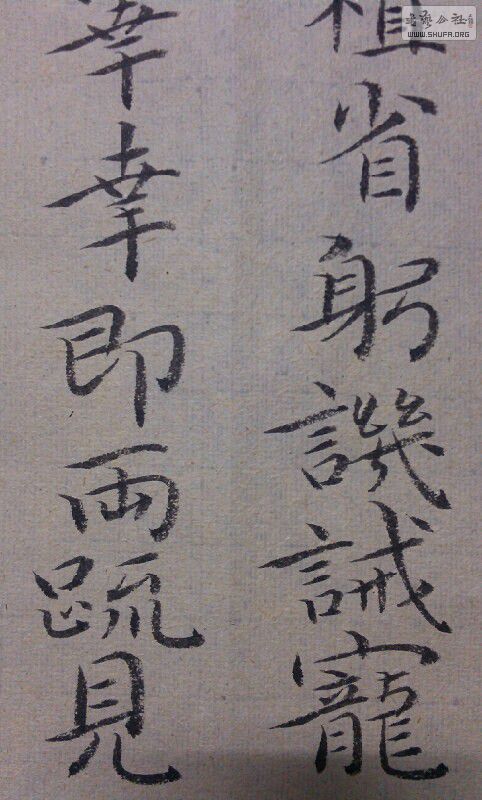 植省躬譏誡寵
幸即両䟽見
书艺公社
WWW.SHUFA.ORG